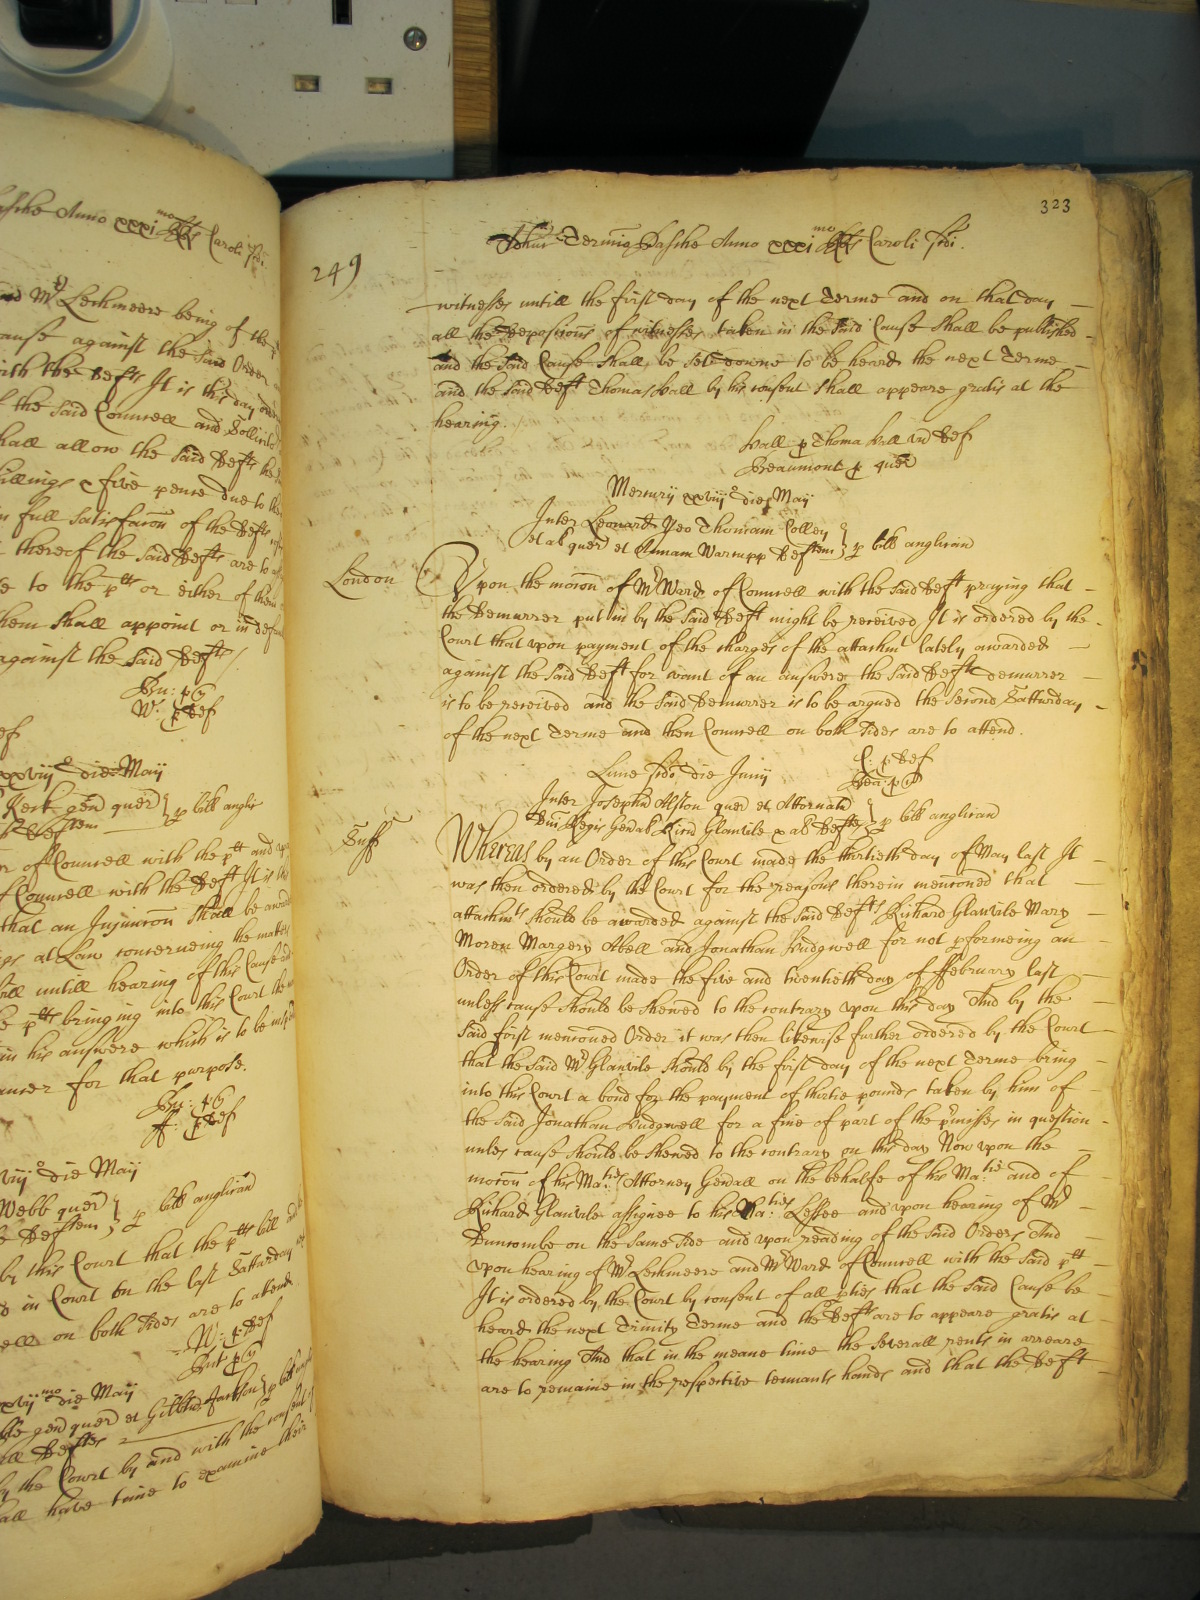 asche Anno xxxi mo R Rs Caroli sdi.
Mr Lechmeere being of the
ause against the said Order
ith the Defts It is this day
f the said Councell and Sollicito
hall allow the said Defts
illings & five pence due to
in full satisfaccon of the Defts
thereof the said Defts are to
e to the ptts or either of them
hem shall appoint or in
against the said Defts
Bu: p Q
W: p Def
ef
xxviij o die Maij
Keck gen quer } p bill anglic
Deftem
n of Councell with the ptt and
f Councell with the Deft It is
that an Injunccon shall be
gs at Law concerneing the matter
bill untill hearing of this Cause
e ptts bringing into this Court the
in his answere which is to be
ancer for that purpose.
Bu: p Q
ff: p Def
viij o die Maij
Webb quer }
e Deftem } p bill anglican
by this Court that the ptts bill
d in Court on the last Satturday
ell on both sides are to attend
W: p Def
p Q
xxvij mo die Maij
gen quer et Jackson } p bill
Deftes
by the Court by and with the consent
all have time to examine their
323
249
Adhuc Termino Pasche Anno xxxi mo R Rs Caroli sdi.
witnesses untill the first day of the next Terme and on that day
all the deposicons of witnesses taken in the said Cause shall be published
and the said Cause shall be sett downe to be heard the next Terme
and the said Deft Thomas Hall by his consent shall appeare gratis at the
hearing.
Hall: p Thoma Hall un Def
Beaumont p quer
Mercurij xxviij o die Maij
Inter Leonard Yeo Thomam Colley }
et al quer et Annam Warnupp Deftem } p bill anglican
London
Upon the mocon of Mr Ward of Councell with the said Deft praying that
the Demurrer put in by the said Deft might be received It is ordered by the
Court that upon payment of the charges of the attachmt lately awarded
against the said Deft for want of an answere the said Defts demurrer
is to be received and the said Demurrer is to be argued the second Satturday
of the next Terme and then Councell on both sides are to attend.
C: p Def
Bea: p Q
Lune sdo die Junij
Inter Josephu Alston quer et Attornat
Dni Regis Genal Ricu Glanvile & al Deftes } p bill anglican
Suff
Whereas by an Order of this Court made the thirtieth day of May last It
was then ordered by the Court for the reasons therein mencioned that
attachmts should be awarded against the said Defts Richard Glanvile Mary
Moren Margery Abell and Jonathan Ludgwell for not pformeing an
Order of this Court made the five and twentieth day of ffebruary last
unless cause should be shewed to the contrary upon this day And by the
said first mencioned Order it was then likewise further ordered by the Court
that the said Mr Glanvile should by the first day of the next Terme bring
into this Court a bond for the payment of thirtie pounds taken by him of
the said Jonathan Ludgwell for a fine of part of the pmisses in question
unles cause should be shewed to the contrary on this day Now upon the
mocon of his Ma:ties Attorney Genall on the behalfe of his Ma:tie and of
Richard Glanvile assignee to his Ma:ties Lessee and upon hearing of Mr
Duncombe on the same side and upon reading of the said Orders And
upon hearing of Mr Lechmeere and Mr Ward of Councell with the said ptt
It is ordered by the Court by consent of all pties that the said Cause be
heard the next Trinity Terme and the Defts are to appeare gratis at
the hearing And that in the meane time the severall rents in arreare
are to remaine in the respective tennants hands and that the Deft